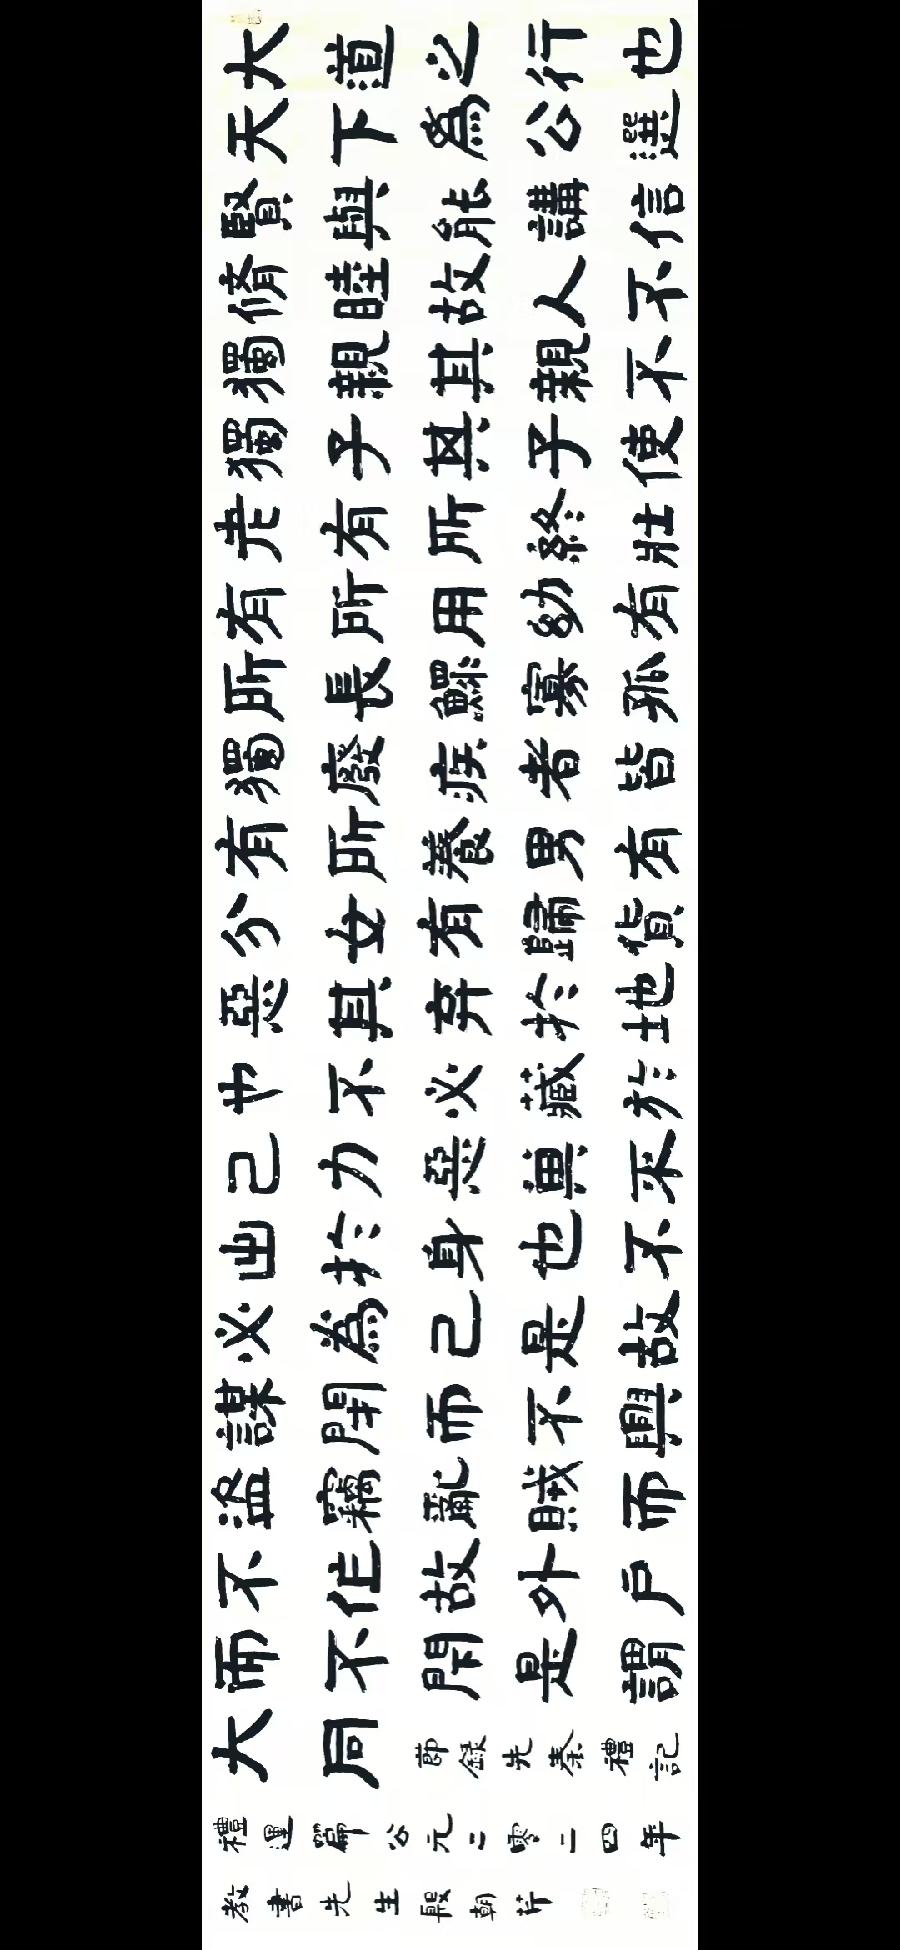 大道之行也
天下為公選
賢與能講信
脩睦故人不
獨親其親不
獨子其子使
老有所終壯
有所用幼有
所長鰥寡孤
獨廢疾者皆
有所養男有
分女有歸貨
惡其弃於地
也不必藏於
己力惡其不
出於身也不
必為己是故
謀閉而不興
盜竊亂賊而
不作故外戶
而不閉是謂
大同節錄先秦禮記
禮運篇公元二零二四年
教書先生殷朝芹